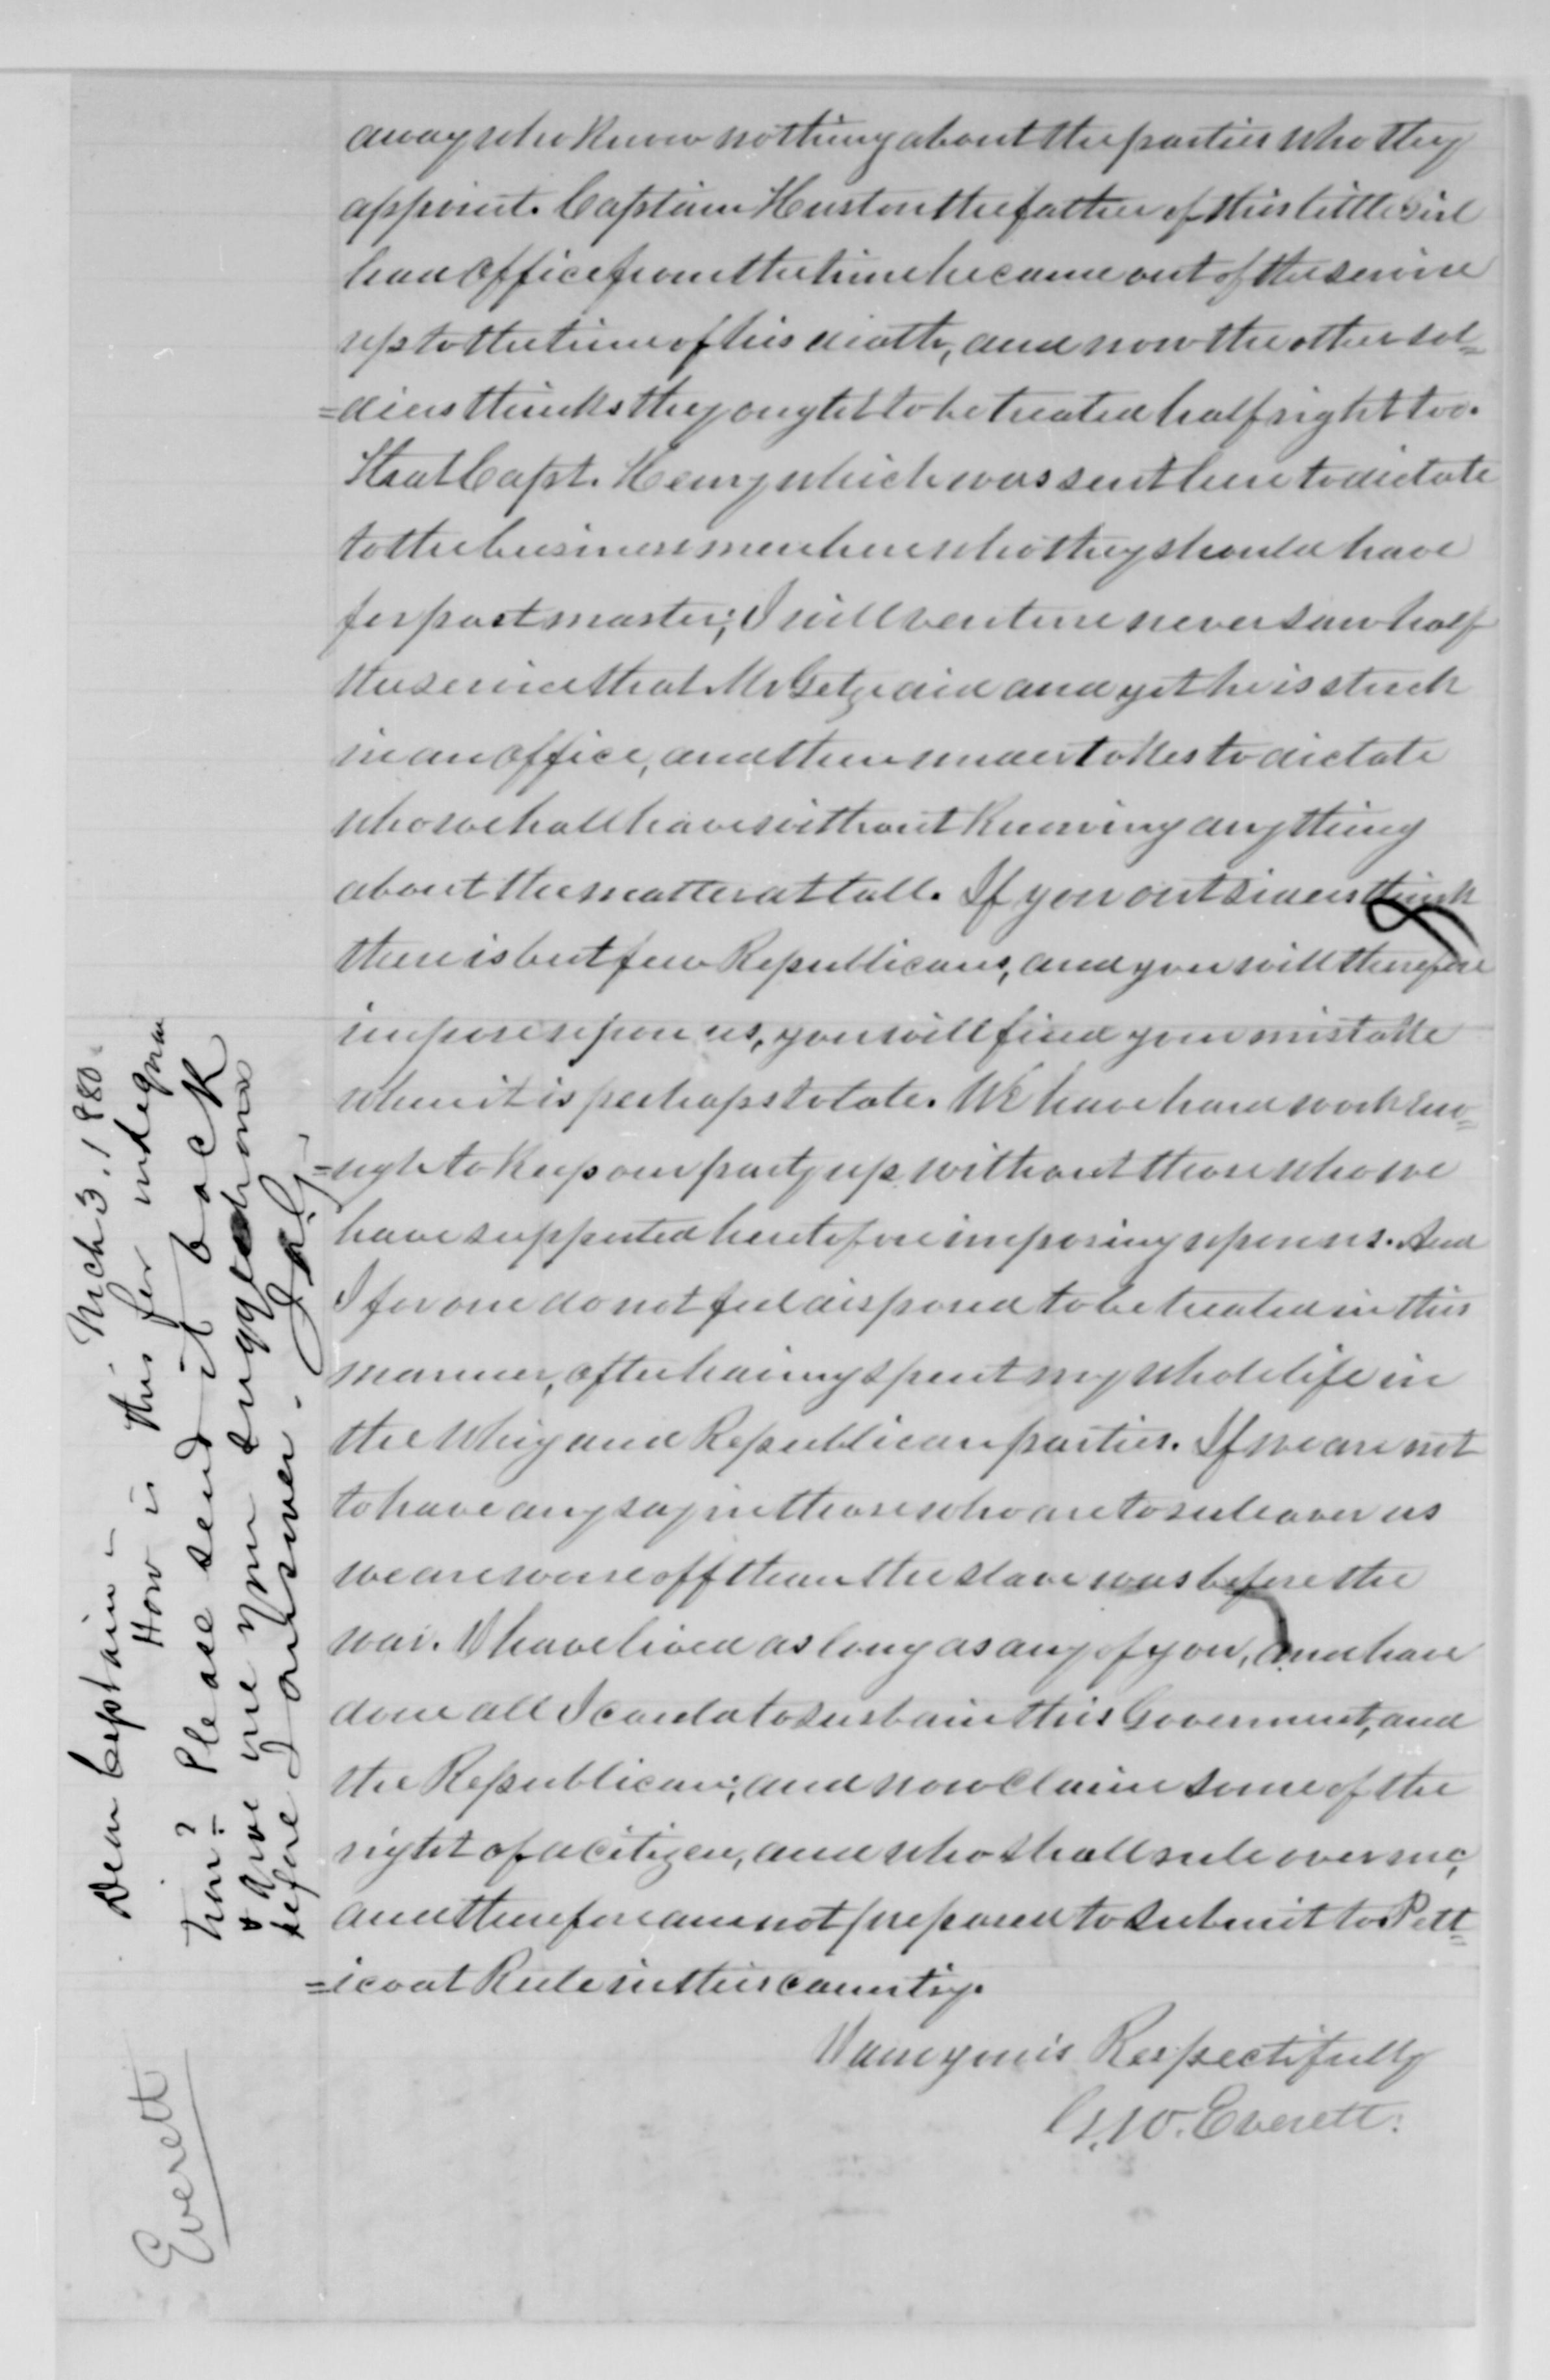 away who know nothing about the parties who they
appoint. Captain Huston the father of this little Girl
had office from the time he came out of the service
up to the time of his death, and now the other sol=
=diers thinks they ought to be treated half right too.
That Capt. Henry which was sent here to dictate
to the business men here who they should have
for postmaster; I will venture never saw half
the service that Mr Getz did and yet he is stuck
in an office, and then undertakes to dictate
who we shall have without knowing anything
about the matter at tall. If you outsiders think
there is but few Republicans, and you will therefore
impose upon us, you will find your mistake
when it is perhaps to late. We have hard work eno=
=ugh to keep our party up without those who we
have supported heretofore imposing upon us. And
I for one do not feel disposed to be treated in this
manner, after having spent my whole life in
the Whig and Republican parties. If we are not
to have any say in those who are to rule over us
we are worse off than the slave was before the
war. I have lived as long as any of you, and have
done all I could to sustain this Goverment, and
the Republican; and now claim some of the
right of a citizen, and who shall rule over me,
and therefore am not prepared to submit to Pett=
=icoat Rule in this country.
I am yours Respectifully
G. W. Everett.
Mch 3. 1880
Dear Captain -
How is this for indigna
tion? Please send it back
& give me your suggestions
before I answer.
Everett